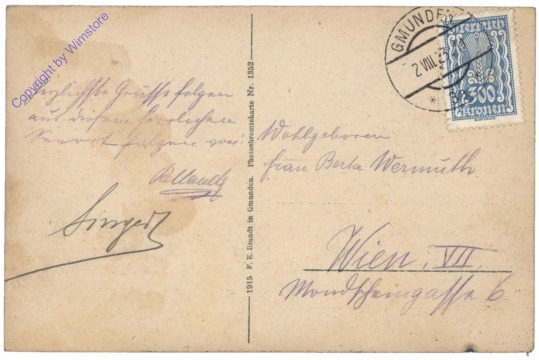 Copyright by Wimstore
Herzlichste Grüsse folgen
aus diesem herrlichen
Singer
1915 F. E. Brandt in Gmunden. Photochromiekarte Nr. 1352
GMUNDEN
2.VIII.23
300
Kronen
Wohlgeboren
Frau Berta Wermuth
Wien, VII
Mondscheingasse 6